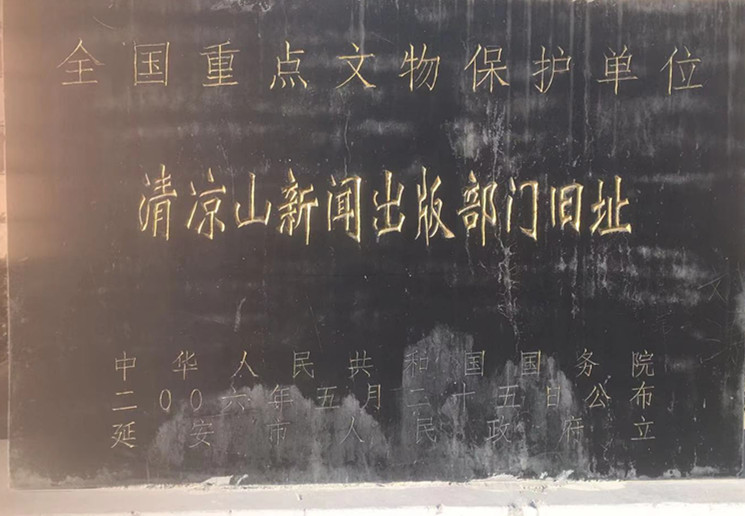 全国重点文物保护单位
清凉山新闻出版部门旧址
中华人民共和国国务院
二〇〇六年五月二十五日公布
延安市人民政府立